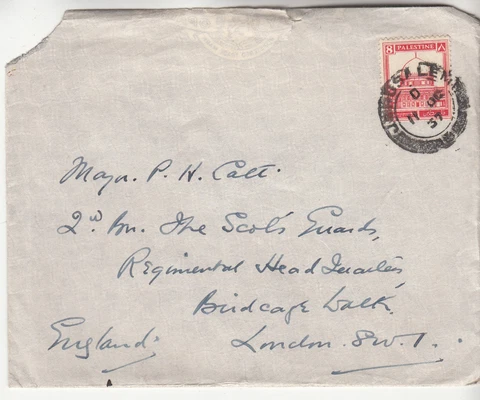 8 PALESTINE ٨
JERUSALEM
D
11 DE
37
Major. P. H. Catt.
2nd Bn. The Scots Guards,
Regimental Head Quarters
Birdcage Walk.
England. London. S.W.1.